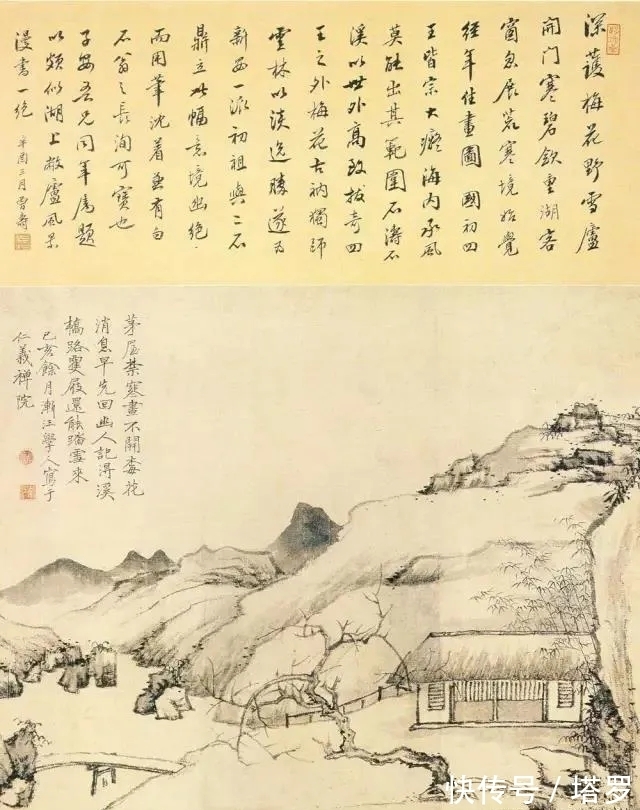 深護梅花野雪廬
開門寒碧飲重湖客
窗忽展荒寒境始覺
經年住畫圖 國初四
王皆宗大癡海內承風
莫能出其範圍石濤石
溪以世外高致拔奇四
王之外梅花古衲獨師
雲林以淡逸勝遂為
新安一派初祖與二石
鼎立此幅意境幽絕
而用筆沈着兼有白
石翁之長洵可寶也
子安吾兄同年屬題
以頗似湖上敝廬風景
漫書一絕 辛酉三月曾壽
茅屋禁寒晝不開梅花
消息早先回幽人記得溪
橋路雙屐還能踏雪來
己亥餘月漸江學人寫于
仁義禪院
快传号 / 塔罗